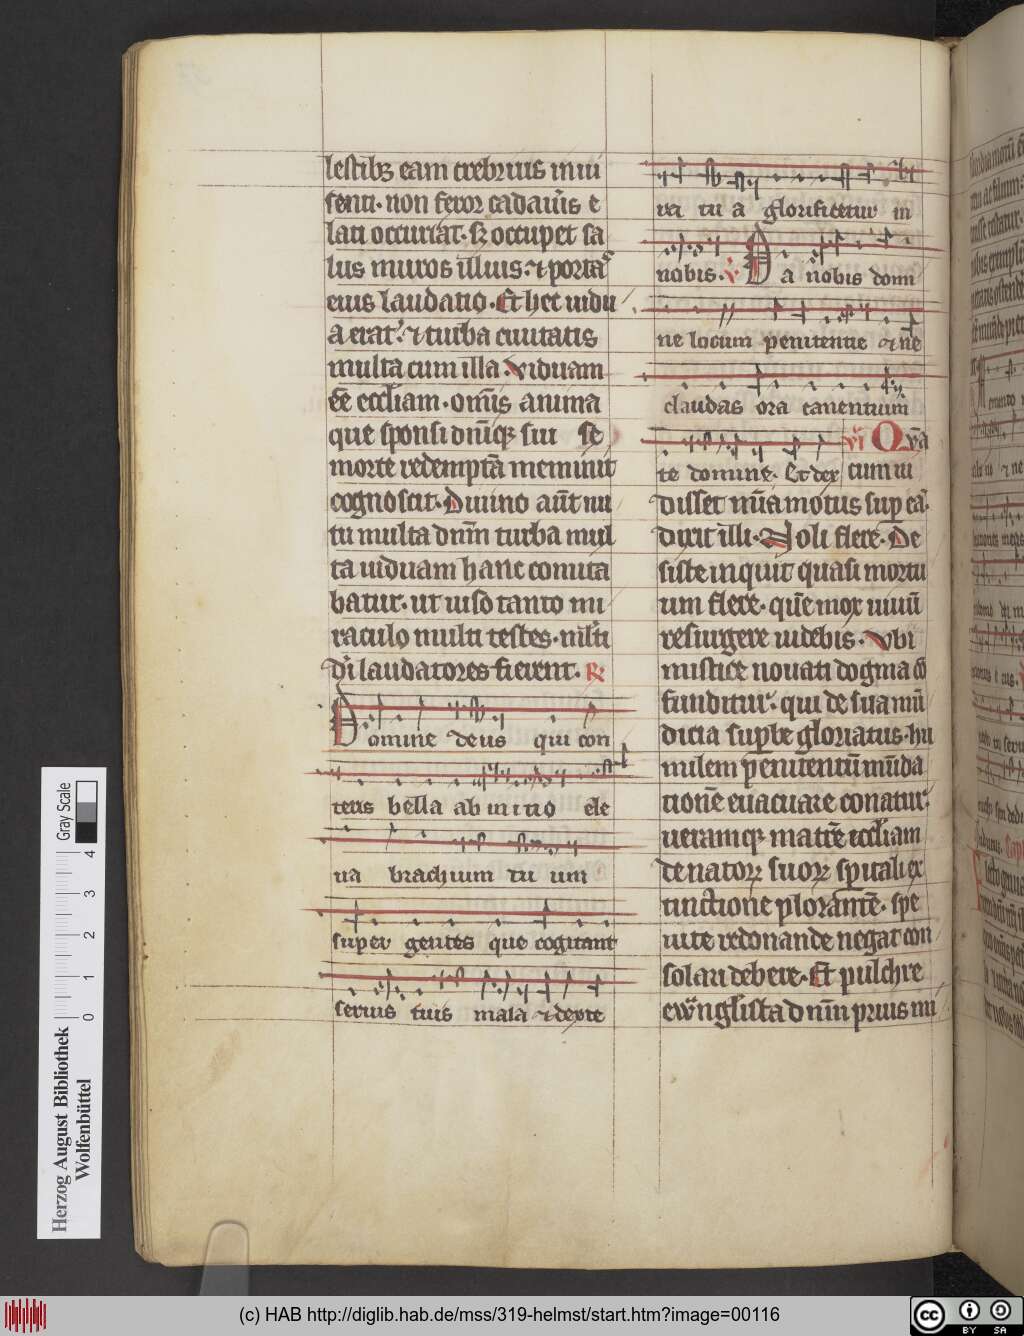 lestibꝫ eam crebrius inui
senti. non fetor cadau͛is e
lati occurrat. sꝫ occupet sa
lus muros illius. ⁊ porta͛
eius laudatio. Et hec uidu
a erat. ⁊ turba ciuitatis
multa cum illa. viduam
ēē eccl̄iam. om̄is anima
que sponsi dn̄iqꝫ sui se
morte redemptā meminit
cognoscit. Diuino aūt nu
tu multa dn̄m turba mul
ta uiduam hanc comita
batur. ut uiso tanto mi
raculo multi testes. ml̄ti
dī laudatores fierent. R
Domine deus qui con
teris bella ab initio ele
ua brachium tu um
super gentes que cogitant
seruis tuis mala ⁊ dexte
ra tu a glorificetur in
nobis. V Da nobis domi
ne locum penitentie ⁊ ne
claudas ora canentium
te domine. Et dex VI Qua
cum ui
disset n̄ia motus sup eā.
dixit illi. Noli flere. De
siste inquit quasi mortu
um flere. quē mox uiuū
resurgere uidebis. Vbi
mistice nouati dogma cō
funditur. qui de sua mū
dicia supbe gloriatus. hu
milem penitentiū mūda
tionē euacuare conatur.
ueramqꝫ matrē eccl̄iam
de natoꝝ suoꝝ sp̄itali ex
tinctione plorantē. spe
uite redonande negat con
solari debere. Et pulchre
ewānglista dn̄m prius mi
Herzog August Bibliothek
Wolfenbüttel
Gray Scale
0 1 2 3 4
(c) HAB http://diglib.hab.de/mss/319-helmst/start.htm?image=00116
cc BY SA